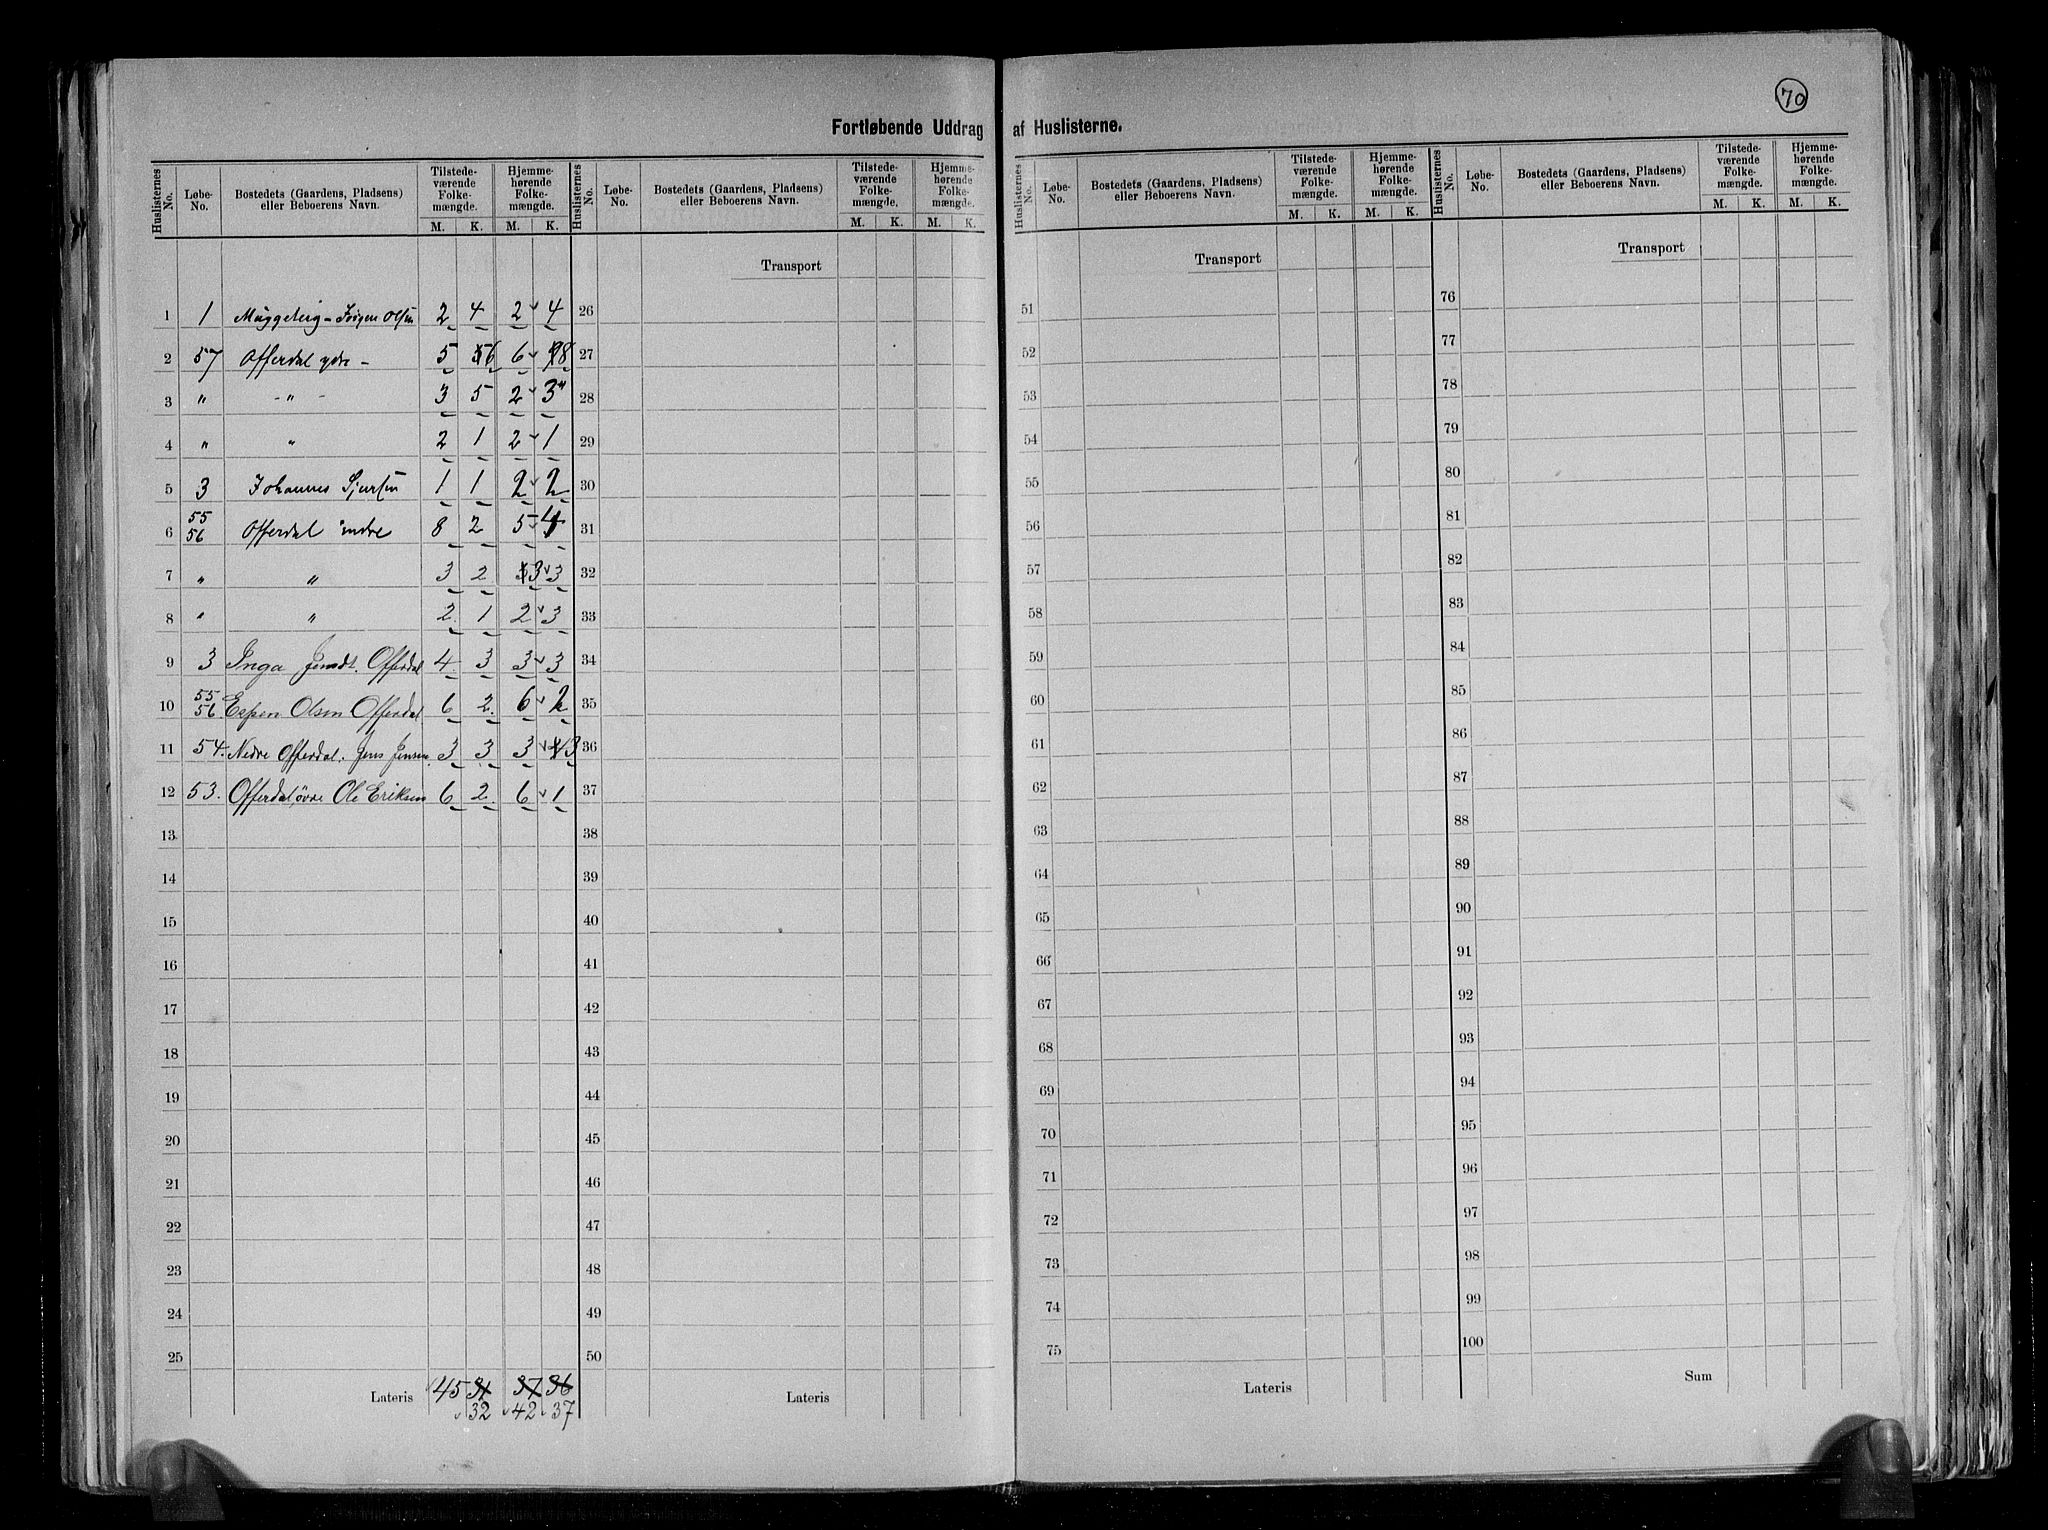 70
Fortløbende Uddrag af Huslisterne.
Huslisternes No. Løbe-No. Bostedets (Gaardens, Pladsens) eller Beboerens Navn. Tilstede-værende Folke-mængde. M. K. Hjemme-hørende Folke-mængde. M. K.
1 1 Muggeberg - Jørgen Olsen 2 4 2 4
2 57 Offerdal ydre - 5 6 6 8
3 " - " - 3 5 2 3
4 " " 2 1 2 1
5 3 Johannes Sjursen 1 1 2 2
6 55 56 Offerdal indre 8 2 5 4
7 " " 3 2 3 3
8 " " 2. 1 2 3
9 3 Inga Offerdal 4. 3 3 3
10 55. 56. Espen Olsen Offerdal 6 2. 6 2
11 54. Nedre Offerdal. Jens Jensen 3 3 3 3
12 53. Offerdal, övre Ole Eriksen 6 2. 6 1
13
14
15
16
17
18
19
20
21
22
23
24
25
Lateris 45 31 37 36
32 42 37
Huslisternes No. Løbe-No. Bostedets (Gaardens, Pladsens) eller Beboerens Navn. Tilstede-værende Folke-mængde. M. K. Hjemme-hørende Folke-mængde. M. K.
Transport
26
27
28
29
30
31
32
33
34
35
36
37
38
39
40
41
42
43
44
45
46
47
48
49
50
Lateris
Huslisternes No. Løbe-No. Bostedets (Gaardens, Pladsens) eller Beboerens Navn. Tilstede-værende Folke-mængde. M. K. Hjemme-hørende Folke-mængde. M. K.
Transport
51
52
53
54
55
56
57
58
59
60
61
62
63
64
65
66
67
68
69
70
71
72
73
74
75
Lateris
Huslisternes No. Løbe-No. Bostedets (Gaardens, Pladsens) eller Beboerens Navn. Tilstede-værende Folke-mængde. M. K. Hjemme-hørende Folke-mængde. M. K.
Transport
76
77
78
79
80
81
82
83
84
85
86
87
88
89
90
91
92
93
94
95
96
97
98
99
100
Sum